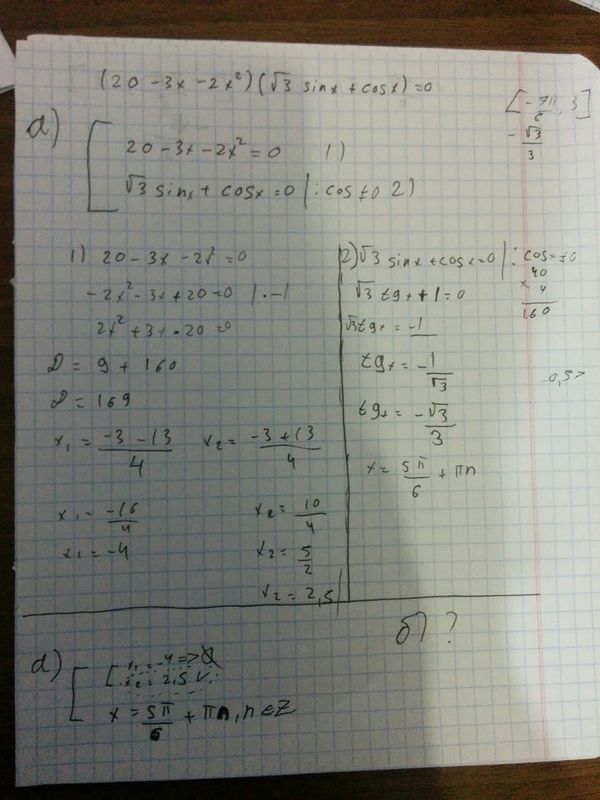 (20 - 3x - 2x²)(√3 sinx + cosx) = 0
[-7π/6; 3]
- √3/3
a)
20 - 3x - 2x² = 0 1)
√3 sinx + cosx = 0 | : cos ≠ 0 2)
1) 20 - 3x - 2x² = 0
-2x² - 3x + 20 = 0 | · -1
2x² + 3x - 20 = 0
D = 9 + 160
D = 169
x₁ = (-3 - 13)/4 x₂ = (-3 + 13)/4
x₁ = -16/4 x₂ = 10/4
x₁ = -4 x₂ = 5/2
x₂ = 2,5
2) √3 sinx + cosx = 0 | : cosx ≠ 0
40
× 4
160
√3 tgx + 1 = 0
√3 tgx = -1
tgx = -1/√3
tgx = -√3/3
x = 5π/6 + πn
б) ?
a)
x₁ = -4 =>
x₂ = 2,5 V
x = 5π/6 + πn, n ∈ Z